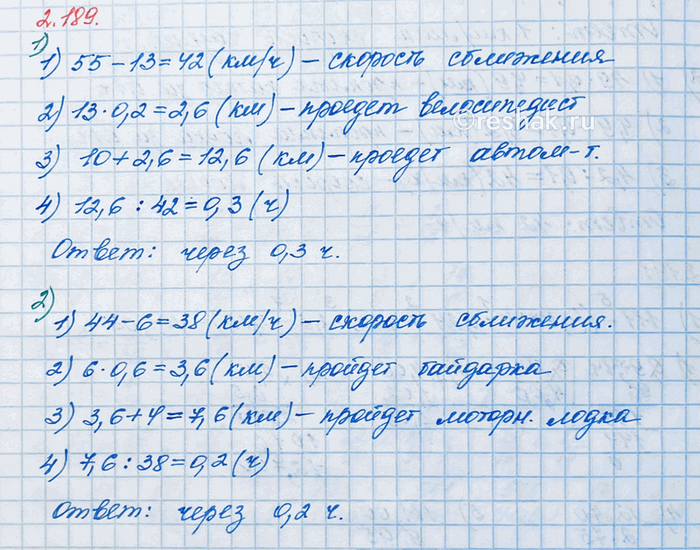 2.189.
1)
1) 55 – 13 = 42 (км/ч) – скорость сближения
2) 13 · 0,2 = 2,6 (км) – проедет велосипедист
©reshak.ru
3) 10 + 2,6 = 12,6 (км) – проедет автом-т.
4) 12,6 : 42 = 0,3 (ч)
Ответ: через 0,3 ч.
2)
1) 44 – 6 = 38 (км/ч) – скорость сближения.
2) 6 · 0,6 = 3,6 (км) – пройдет байдарка
3) 3,6 + 4 = 7,6 (км) – пройдет моторн. лодка
4) 7,6 : 38 = 0,2 (ч)
Ответ: через 0,2 ч.